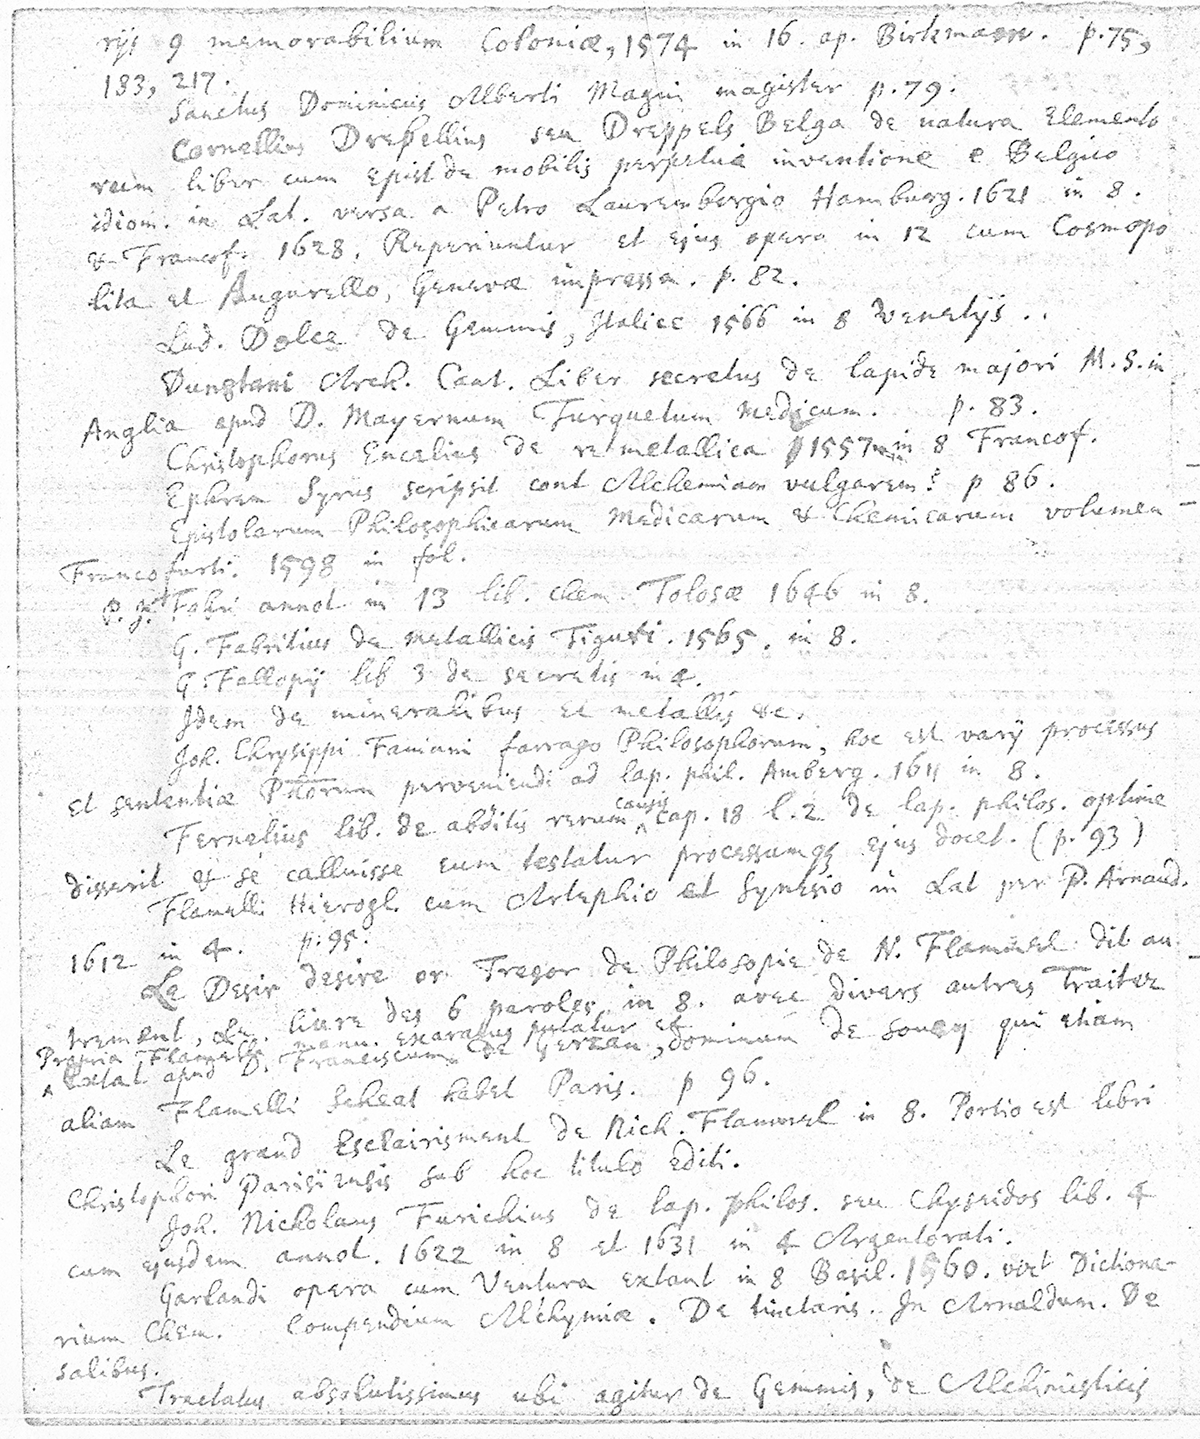 rijs 9 memorabilium Coloniæ, 1574 in 16. ap. Birkmann. p. 75,
183, 217.
Sanctus Dominicus Alberti Magni magister p. 79.
Cornellius Drebellius seu Dreppels Belga de natura Elemento
rum liber cum Epist de mobilis perpetui inventione e Belgico
idiom. in Lat. versa a Petro Laurembergio Hamburg. 1621 in 8.
& Francof. 1628. Reperiuntur et ejus opera in 12 cum Cosmopo
lita et Augurello, Genevæ impressa. p. 82.
Lud. Dolce de Gemmis, Italice 1566 in 8 Venetijs ..
Dunstani Arch. Cant. Liber secretus de lapide majori M.S. in
Anglia apud D. Mayernum Turquetum Medicum. p. 83.
Christophorus Encelius de re metallica 1557 in 8 Francof.
Ephrem Syrus scripsit cont Alchemiam vulgarem? p 86.
Epistolarum Philosophicarum Medicarum & Chemicarum volumen
Francofurti. 1598 in fol.
P. J. Fabri annot in 13 lib. chem Tolosæ 1646 in 8.
G. Fabritius de Metallicis Tiguri. 1565. in 8.
G. Fallopij lib 3 de secretis in 4.
Idem de mineralibus et metallis &c.
Joh. Chrysippi Famani farrago Philosophorum, hoc est varij processus
et sententiæ Phorum perveniendi ad lap. phil. Amberg. 1611 in 8.
Fernelius lib. de abditis rerum causis cap. 18 l. 2 de lap. philos. optime
disserit & se calluisse eum testatur processumq ejus docet. (p. 93)
Flamelli Hierogl. cum Artephio et Synesio in Lat per P. Arnaud.
1612 in 4. p. 95.
Le Desir desire or Tresor de Philosopie de N. Flammel dit au
trement, Le livre des 6 paroles in 8. avec divers autres Traitez
Propria Flamelli manu exaratus putatur et
Extat apud D. Franciscum de Gerzan, dominum de Soucy qui etiam
aliam Flamelli Scheat habet Paris. p 96.
Le grand Esclairisment de Nich. Flammel in 8. Portio est libri
Christophori Parisiensis sub hoc titulo editi.
Joh. Nickolaus Furichius de lap. philos. seu Chyseidos lib. 4
cum ejusdem annot. 1622 in 8 et 1631 in 4 Argentorati.
Garlandi opera cum Ventura extant in 8 Basil. 1560. vizt Dictiona-
rium Chem. Compendium Alchymiæ. De tincturis. In Arnaldum. De
salibus.
Tractatus absolutissimus ubi agitur de Gemmis, de Alchimisticis